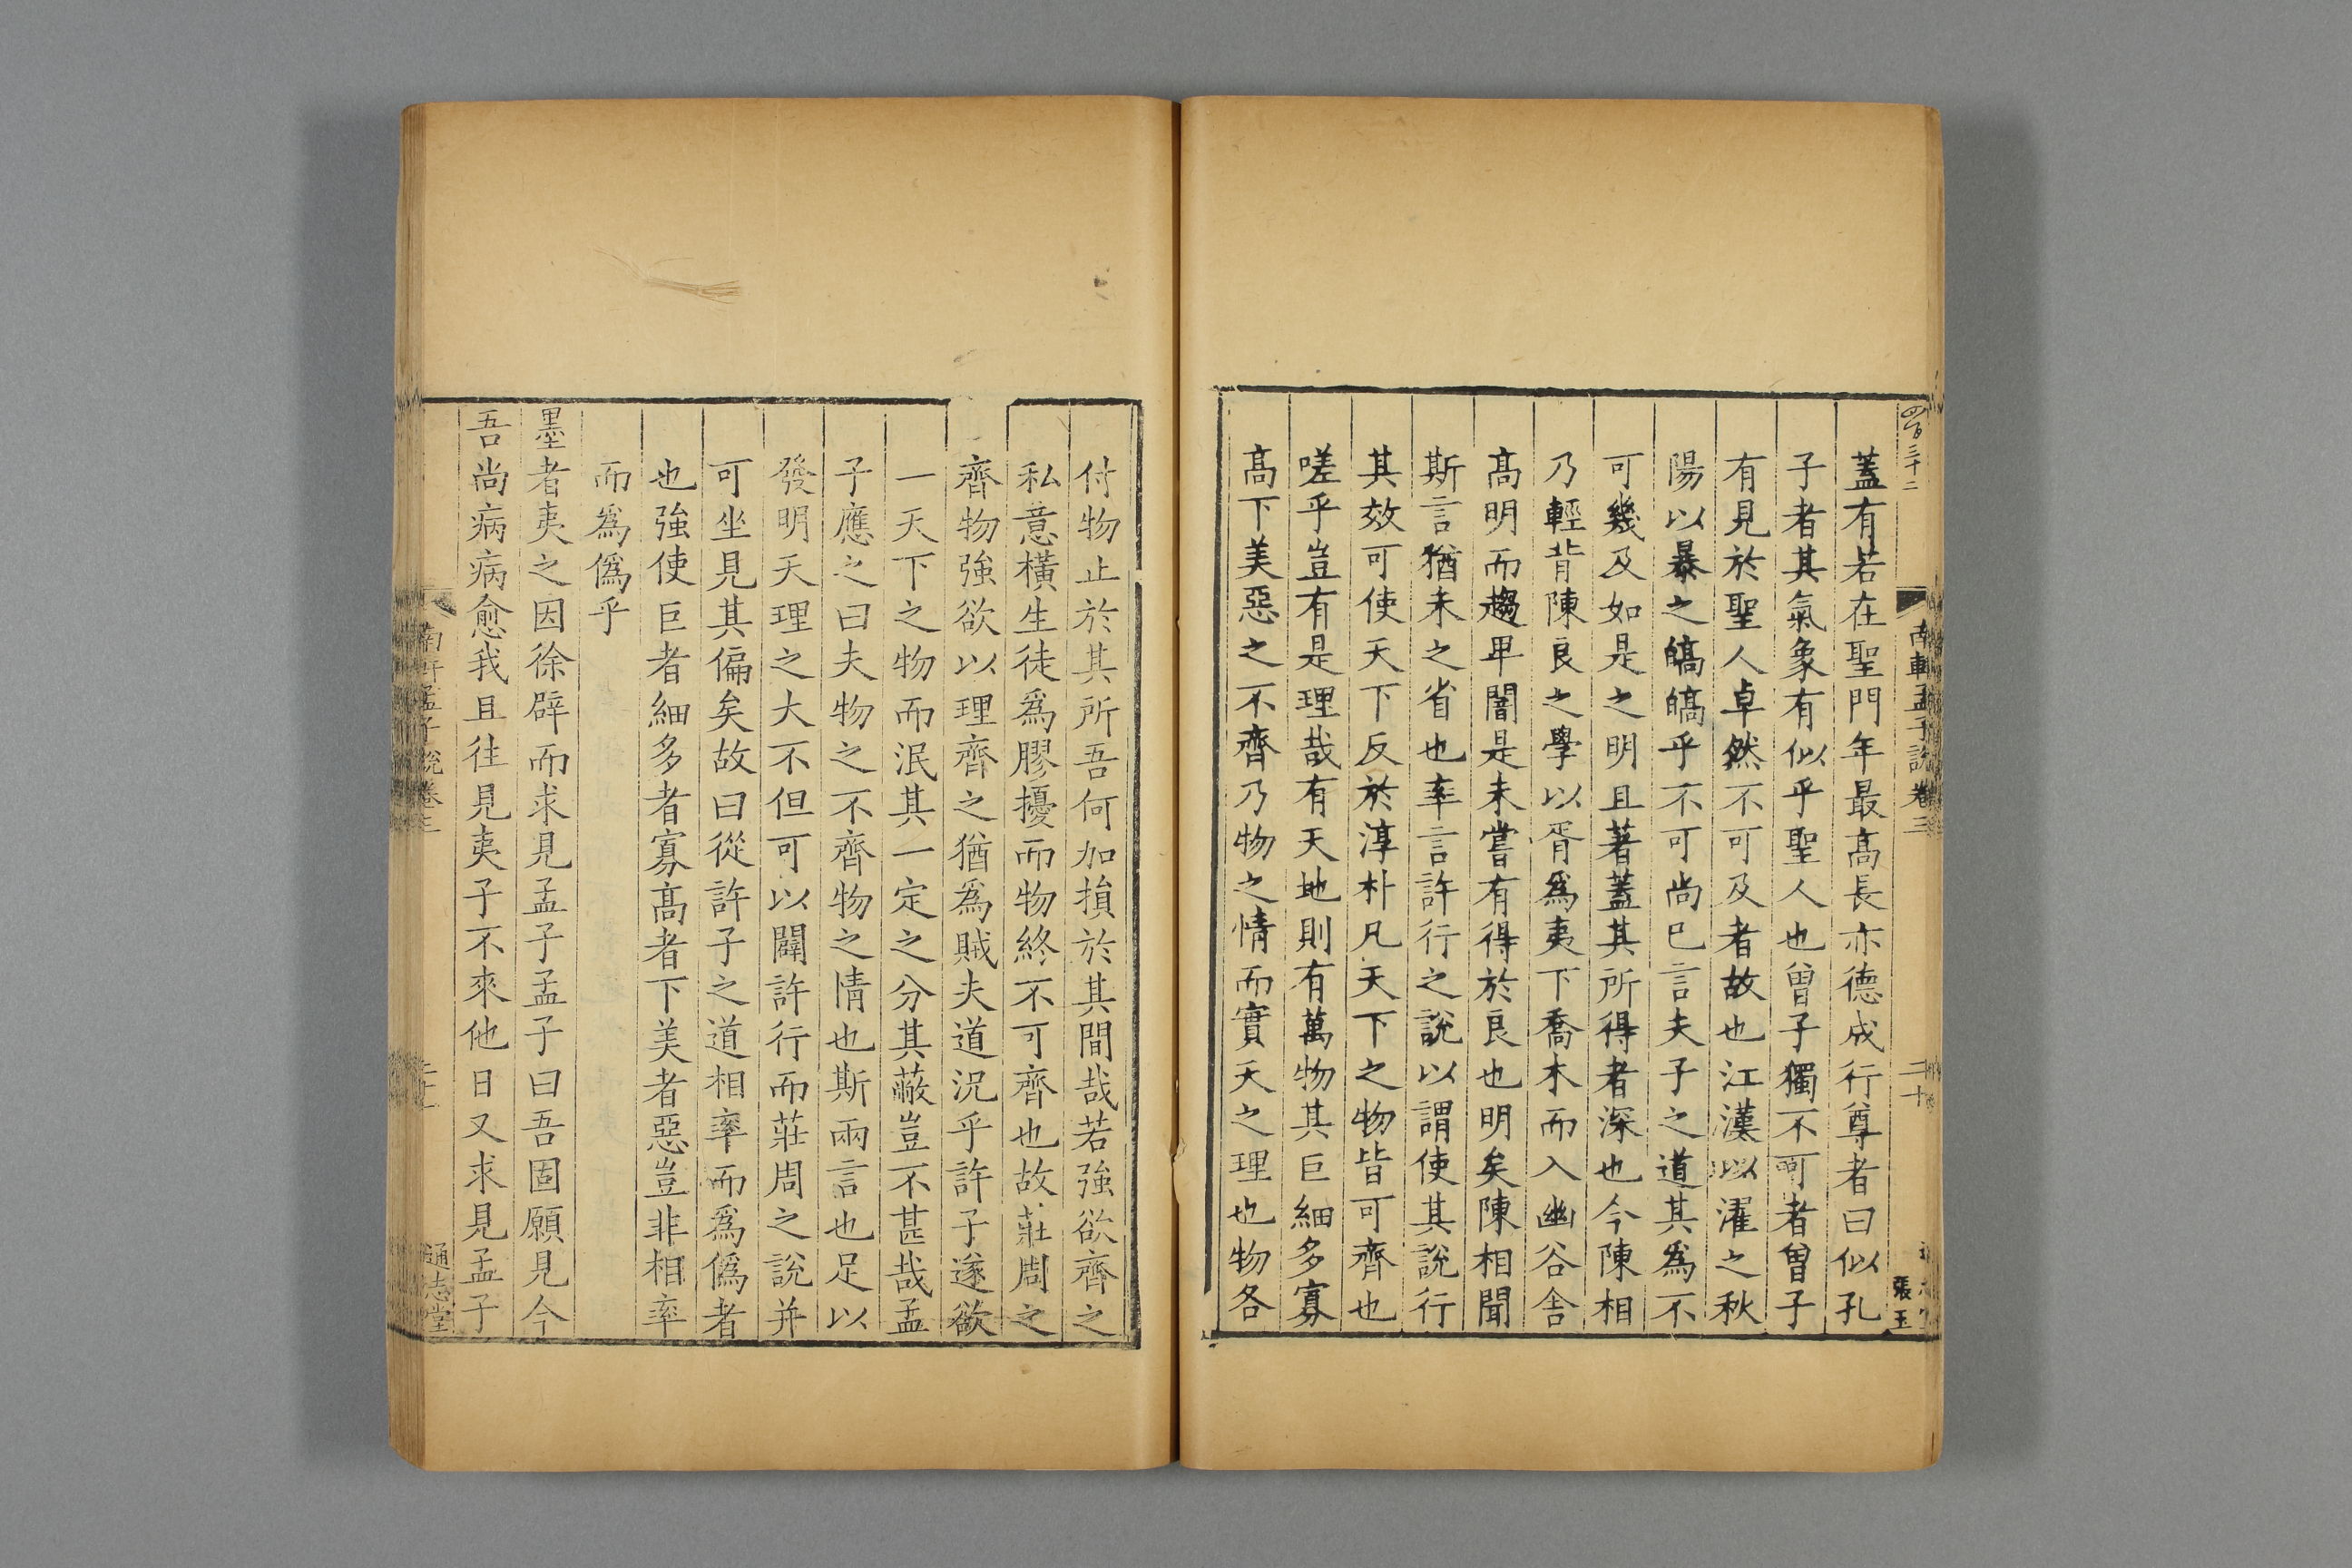 四百三十二
南軒孟子說卷三
二十
張玉
蓋有若在聖門年最髙長亦德成行尊者曰似孔
子者其氣象有似乎聖人也曾子獨不可者曾子
有見於聖人卓然不可及者故也江漢以濯之秋
陽以暴之皜皜乎不可尚已言夫子之道其爲不
可幾及如是之明且著蓋其所得者深也今陳相
乃輕背陳良之學以胥爲夷下喬木而入幽谷舍
髙明而趨卑闇是未嘗有得於良也明矣陳相聞
斯言猶未之省也率言許行之說以謂使其說行
其效可使天下反於淳朴凡天下之物皆可齊也
嗟乎豈有是理哉有天地則有萬物其巨細多寡
髙下美惡之不齊乃物之情而實天之理也物各
付物止於其所吾何加損於其間哉若強欲齊之
私意橫生徒爲膠擾而物終不可齊也故莊周之
齊物強欲以理齊之猶爲賊夫道況乎許子遂欲
一天下之物而泯其一定之分其蔽豈不甚哉孟
子應之曰夫物之不齊物之情也斯兩言也足以
發明天理之大不但可以闢許行而莊周之說并
可坐見其偏矣故曰從許子之道相率而爲僞者
也強使巨者細多者寡髙者下美者惡豈非相率
而爲僞乎
墨者夷之因徐辟而求見孟子孟子曰吾固願見今
吾尚病病愈我且往見夷子不來他日又求見孟子
南軒孟子說卷三
二十一
通志堂